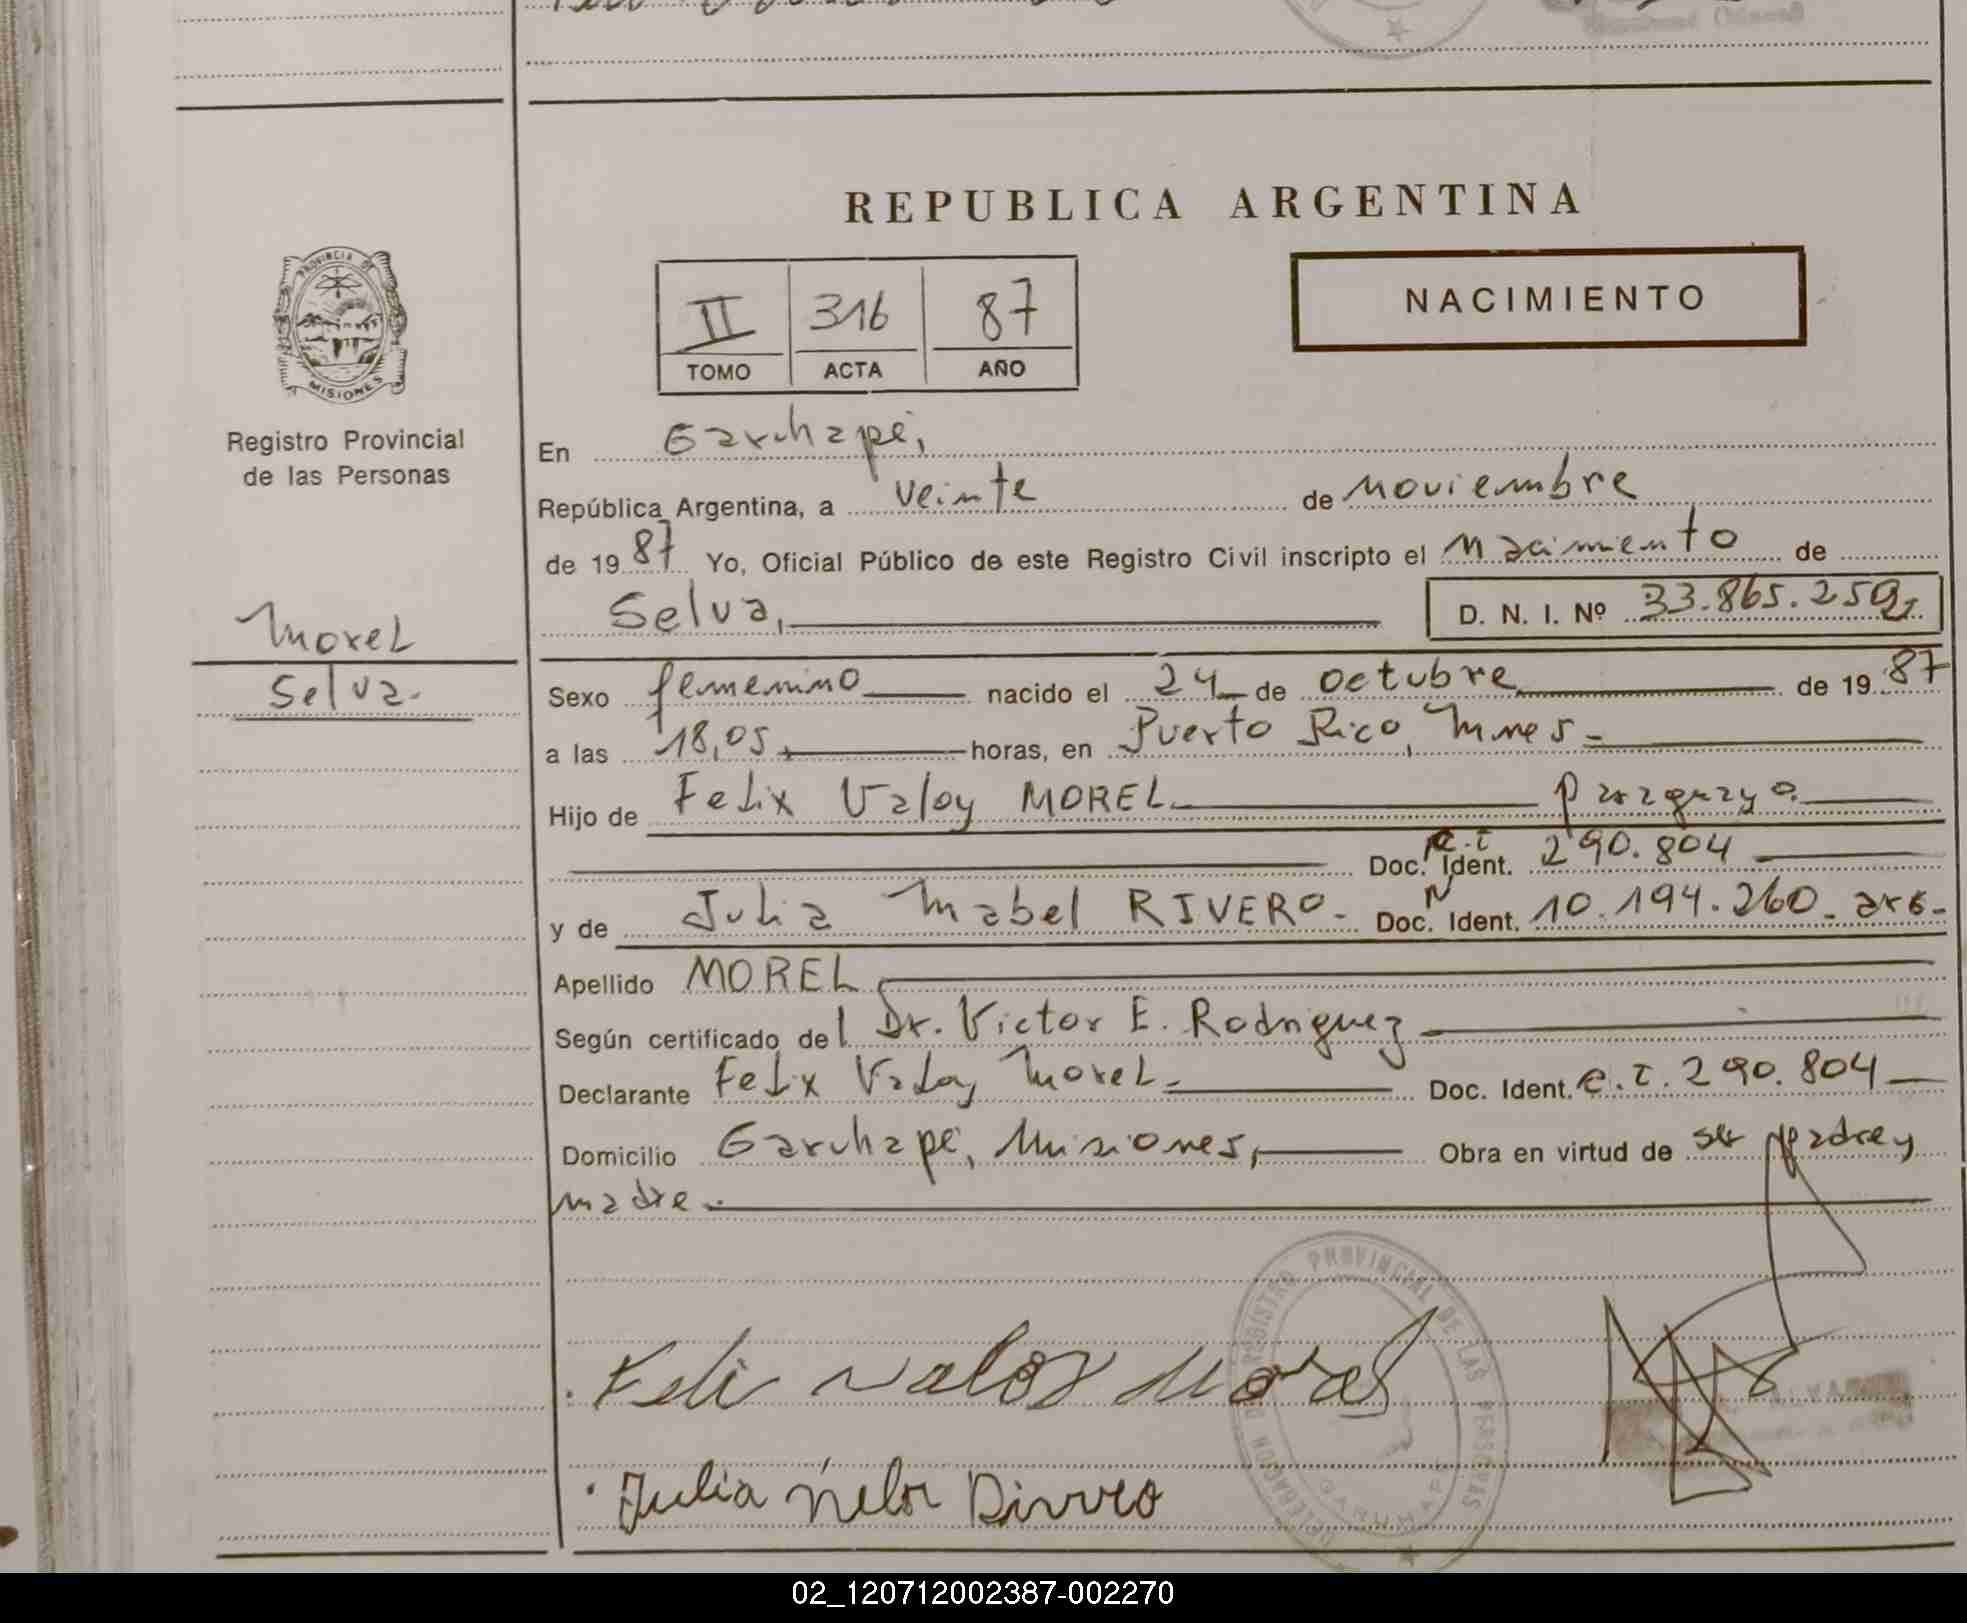 REPUBLICA ARGENTINA
NACIMIENTO
PROVINCIA DE
MISIONES
Registro Provincial
de las Personas
Morel
Selva.
II 316 87
TOMO ACTA AÑO
En Garuhapé,
República Argentina, a veinte de noviembre
de 19 87 Yo, Oficial Público de este Registro Civil inscripto el nacimiento de
Selva, D. N. I. Nº 33.865.259
Sexo femenino nacido el 24 de octubre de 19 87
a las 18,05 horas, en Puerto Rico, Mnes-
Hijo de Felix Valoy MOREL paraguayo
Doc. Ident. c.i 290.804
y de Julia Mabel RIVERO- Doc. Ident. N 10.194.260- arg-
Apellido MOREL
Según certificado del Dr. Victor E. Rodriguez
Declarante Felix Valoy Morel- Doc. Ident. c.i. 290.804
Domicilio Garuhapé, Misiones, Obra en virtud de ser padre y
madre.
REGISTRO PROVINCIAL DE LAS PERSONAS
DELEGACION
GARUHAPE
Julia
02_120712002387-002270